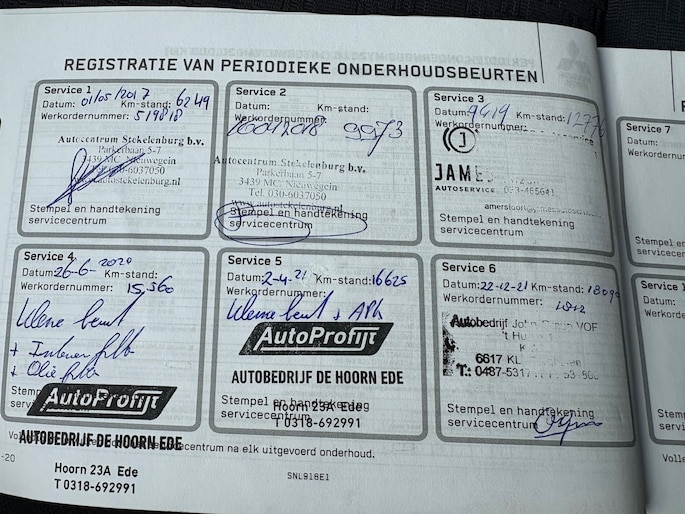 REGISTRATIE VAN PERIODIEKE ONDERHOUDSBEURTEN
Service 1
Datum: 01/05/2017 Km-stand: 6249
Werkordernummer: 519818
Autocentrum Stekelenburg b.v.
Parkerbaan 5-7
3439 MC Nieuwegein
Tel. 030-6037050
Stempel en handtekening
servicecentrum
Service 2
Datum: Km-stand:
Werkordernummer:
9973
Autocentrum Stekelenburg b.v.
Parkerbaan 5-7
3439 MC Nieuwegein
Tel. 030-6037050
www.autostekelenburg.nl
Stempel en handtekening
servicecentrum
Service 3
Datum: 9419 Km-stand:
Werkordernummer:
JAMES
AUTOSERVICE
Stempel en handtekening
servicecentrum
Service 4
Datum: 26-6-2020 Km-stand:
Werkordernummer: 15.560
Kleine beurt
+ Interieur filter
+ Olie filter
AutoProfijt
AUTOBEDRIJF DE HOORN EDE
Hoorn 23A Ede
T 0318-692991
Service 5
Datum: 2-4-21 Km-stand: 16625
Werkordernummer:
Kleine beurt + APK
AutoProfijt
AUTOBEDRIJF DE HOORN EDE
Stempel en handtekening
servicecentrum
Hoorn 23A Ede
T 0318-692991
Service 6
Datum: 22-12-21 Km-stand:
Werkordernummer:
Autobedrijf VOF
6617 KL
T.: 0487-531
Stempel en handtekening
servicecentrum
servicecentrum na elk uitgevoerd onderhoud.
-20
SNL916E1
Service 7
Datum:
Werkordernummer
Stempel en
servicecentr
Datum:
Werkorder
Stempel e
service
Volle